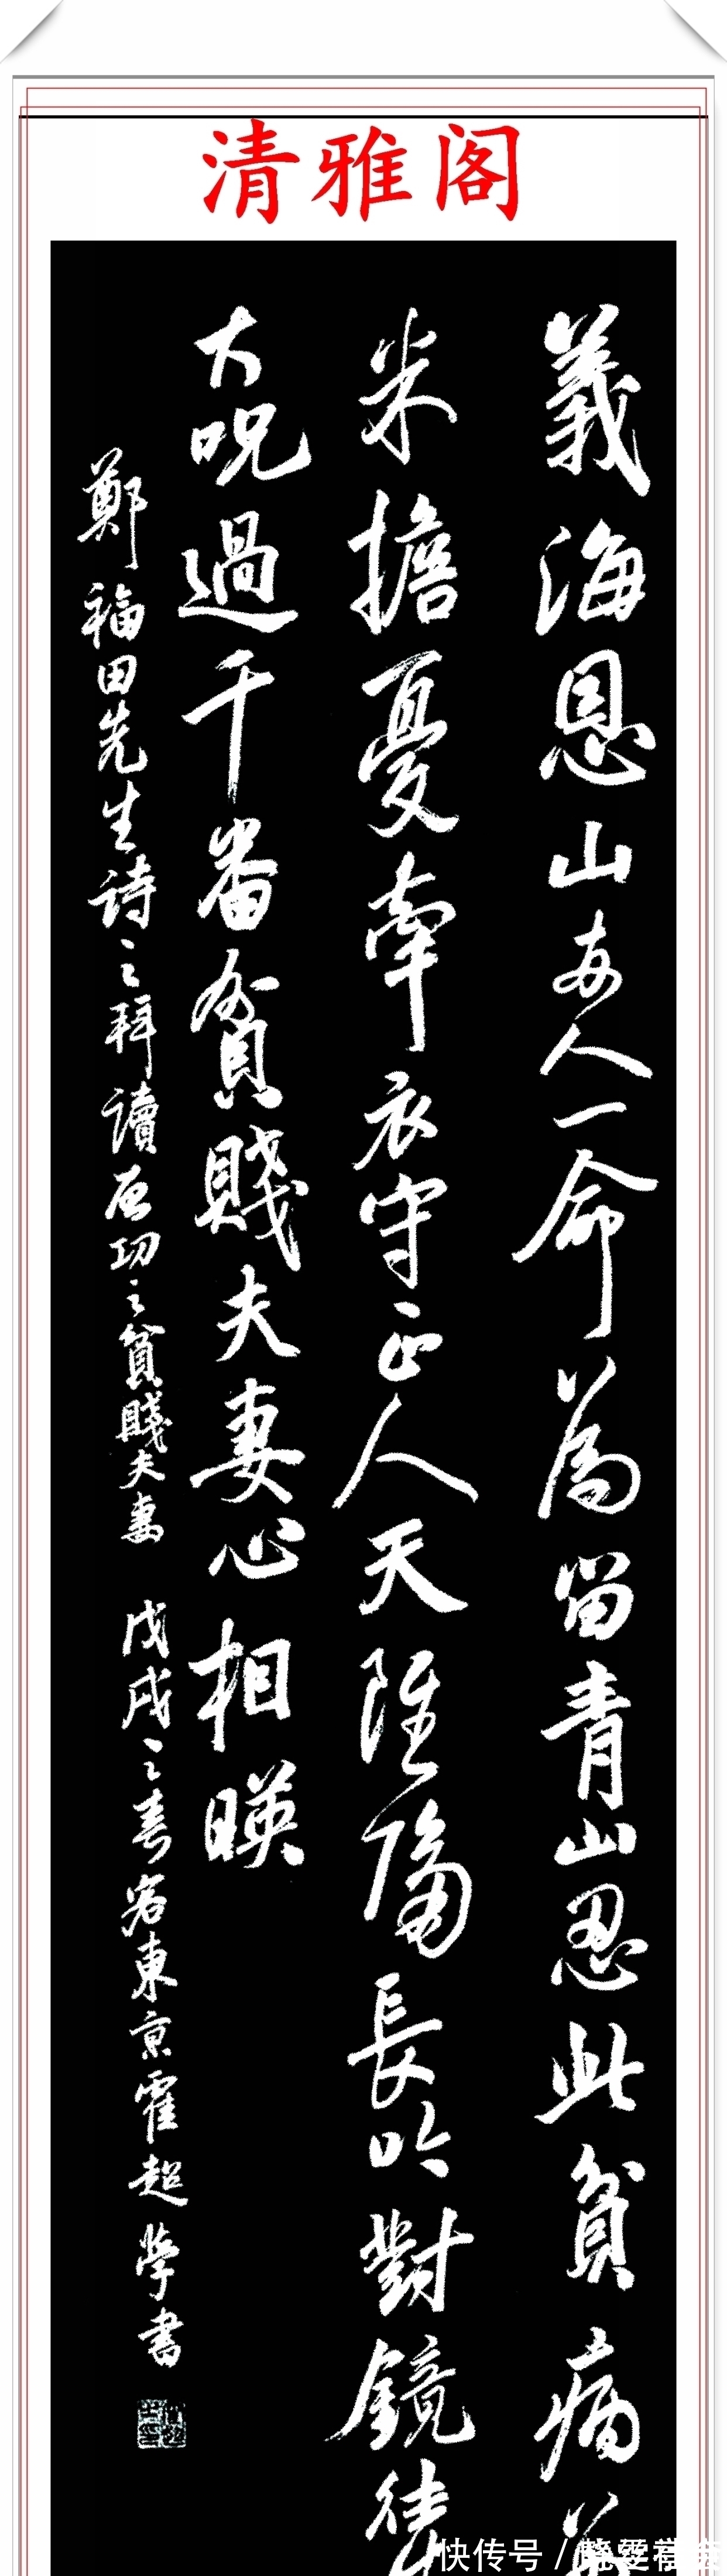 清雅阁
義海恩山安人一命為留青山忍此貧病
米擔憂牽衣守正人天陡隔長吟對鏡
大呪過千番貧賤夫妻心相暎
鄭福田先生詩之拜讀啟功之貧賤夫妻 戊戌之春客東京霍超學書
快传号 /